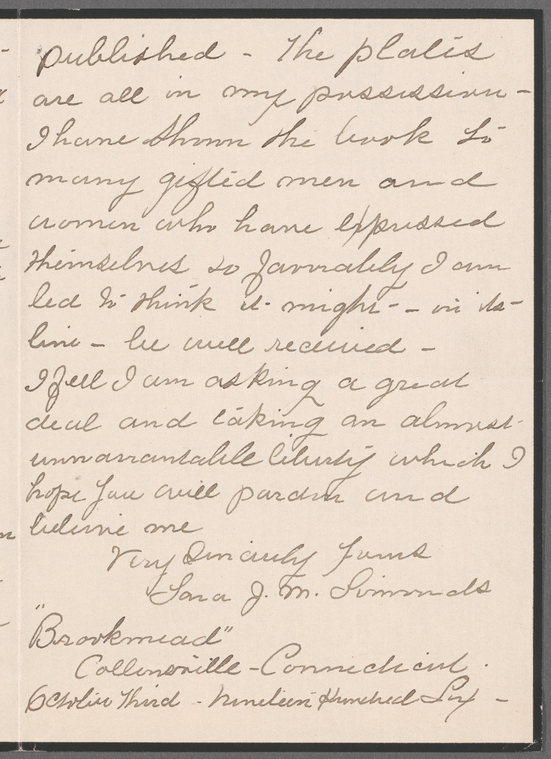 published - The plates
are all in my possession -
I have shown the book to
many gifted men and
women who have expressed
themselves so favorably I am
led to think it might - in its
line - be well received -
I feel I am asking a great
deal and taking an almost
unwarrantable liberty which I
hope you will pardon and
believe me
Very Sincerely Yours
Sara J. M. Simonds
"Brookmead"
Collinsville - Connecticut.
October Third - Nineteen Hundred Six -